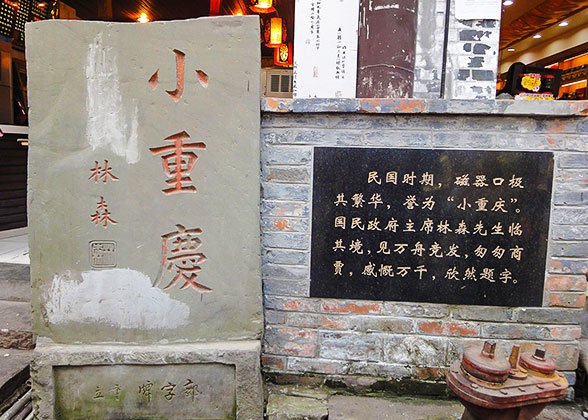 小重慶
林森
民国时期，磁器口极
其繁华，誉为“小重庆”。
国民政府主席林森先生临
其境，见万舟竞发，匆匆商
贾，感慨万千，欣然题字。